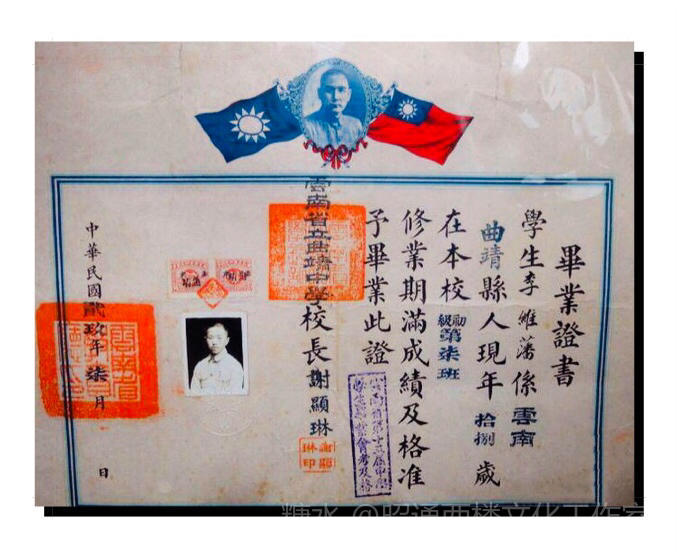 畢業證書
學生李維藩係雲南
曲靖縣人現年拾捌歲
在本校初級第柒班
修業期滿成績及格准
予畢業此證
雲南省立曲靖中學校長謝顯琳
謝顯琳印
中華民國貳玖年柒月 日